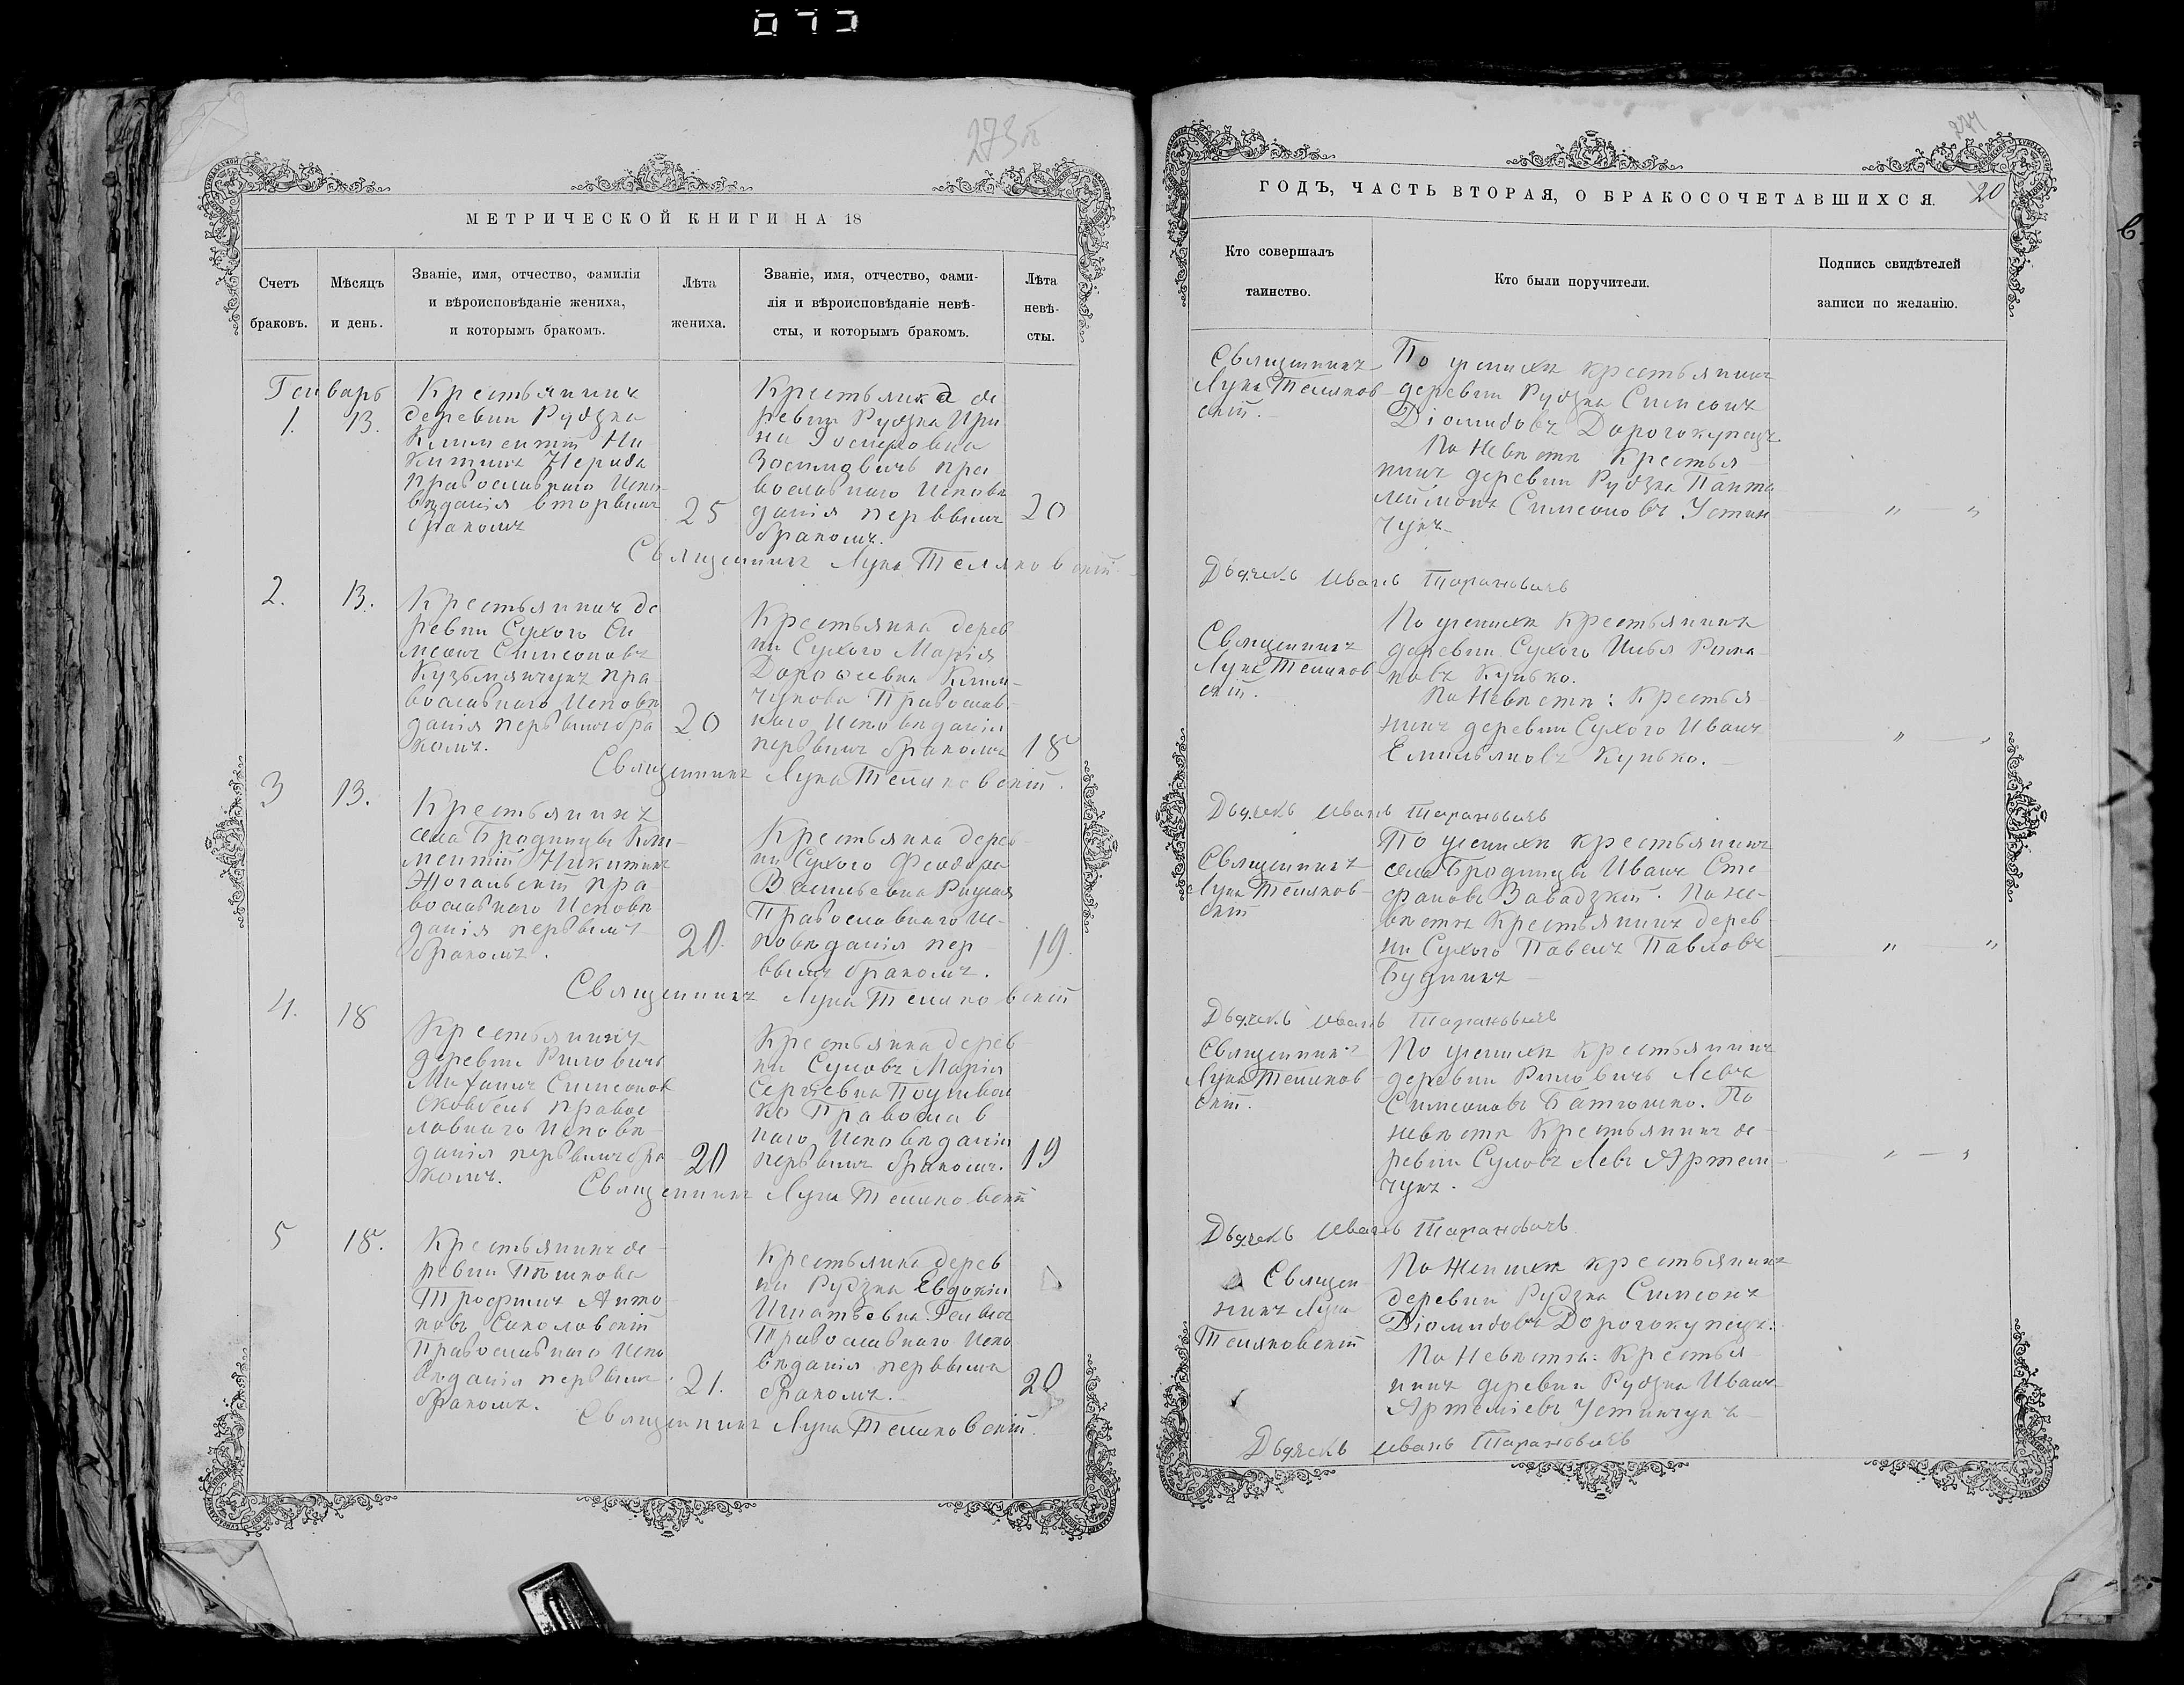 273
МЕТРИЧЕСКОЙ КНИГИ НА 18
Счетъ браковъ.
Мѣсяцъ и день.
Званіе, имя, отчество, фамилія
и вѣроисповѣданіе жениха,
и которымъ бракомъ.
Лѣта жениха.
Званіе, имя, отчество, фами-
лія и вѣроисповѣданіе невѣ-
сты, и которымъ бракомъ.
Лѣта невѣ-
сты.
Генварь
1. 13.
Крестьянинъ
деревни Рудзка
Климентій Ни
китинъ
православнаго Испо
вѣданія вторымъ
бракомъ
25
Крестьянка де
ревни Рудзка Ири
на
православнаго Исповѣ
данія первымъ
бракомъ.
20
Священникъ Лука Теляковскій
2. 13.
Крестьянинъ де
ревни Сухого Си
меонъ Симеоновъ
Кузьмянчукъ пра
вославнаго Исповѣ
данія первымъ бра
комъ.
20
Крестьянка дерев
ни Сухого Марія
Дорофеевна Клим-
чукова Православ-
наго Исповѣданія
первымъ бракомъ
18
Священникъ Лука Теляковскій.
3 13.
Крестьянинъ
села Бродницы Кли-
ментій Никитинъ
Жогальскій пра
вославнаго Исповѣ
данія первымъ
бракомъ.
20.
Крестьянка дерев-
ни Сухого Феодора
Васильевна
Православнаго Ис-
повѣданія пер
вымъ бракомъ.
19.
Священникъ Лука Теляковскій
4. 18
Крестьянинъ
деревни
Михаилъ Симеонов
правос
лавнаго Исповѣ
данія первымъ бра
комъ.
20
Крестьянка дерев
ни Суловъ Марія
Сергѣевна
Православ
наго Исповѣданія
первымъ бракомъ.
19
Священникъ Лука Теляковскій
5 18.
Крестьянинъ де
ревни Пѣшкова
Трофимъ Анто
новъ Соколовскій
Православнаго Испо
вѣданія первымъ
бракомъ.
21.
Крестьянка дерев
ни Рудзка Евдокія
Игнатьевна
Православнаго Испо
вѣданія первымъ
бракомъ.
20
Священникъ Лука Теляковскій.
274
ГОДЪ, ЧАСТЬ ВТОРАЯ, О БРАКОСОЧЕТАВШИХСЯ. 20
Кто совершалъ
таинство.
Кто были поручители.
Подпись свидѣтелей
записи по желанію.
Священникъ
Лука Теляков
скій.
По женихѣ крестьянинъ
деревни Рудзка Симеонъ
Діомидовъ Дорогокупецъ
По Невѣстѣ Крестья
нинъ деревни Рудзка Панте
леймонъ Симеоновъ Устин
чукъ
" — "
Дьячекъ Иванъ Тарановичъ
Священникъ
Лука Теляков
скій.
По женихѣ Крестьянинъ
деревни Сухого Илья Рома
новъ Кунько.
По Невѣстѣ: Крестья
нинъ деревни Сухого Иванъ
Емильяновъ Кунько.
" — "
Дьячекъ Иванъ Тарановичъ
Священникъ
Лука Теляков
скій
По женихѣ крестьянинъ
села Бродницы Иванъ Сте
фановъ Завадзкій. По не-
вѣстѣ Крестьянинъ дерев
ни Сухого Павелъ Павловъ
Будникъ
" — "
Дьячекъ Иванъ Тарановичъ
Священникъ
Лука Теляков
скій.
По женихѣ Крестьянинъ
деревни Левъ
Симеоновъ Батюшко. По
невѣстѣ Крестьянинъ де
ревни Суловъ Левъ Артем
чукъ.
" — "
Дьячекъ Иванъ Тарановичъ
Священ
никъ Лука
Теляковскій
По Женихѣ крестьянинъ
деревни Рудзка Симеонъ
Діомидовъ Дорогокупецъ.
По Невѣстѣ: Крестья
нинъ деревни Рудзка Иванъ
Артеміевъ Устинчукъ
Дьячекъ Иванъ Тарановичъ